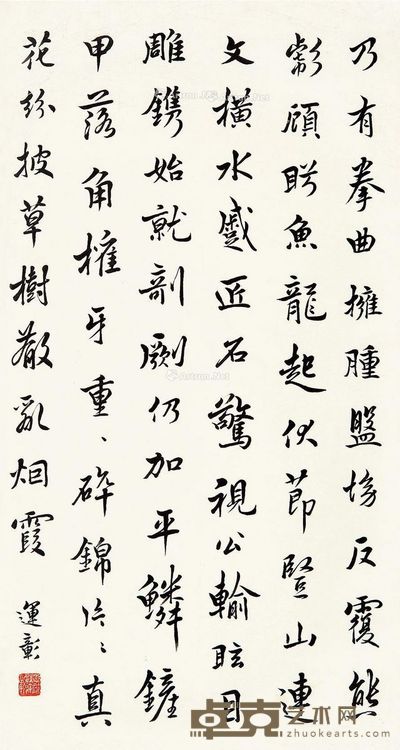 乃有拳曲擁腫盤坳反覆熊
彪顧盼魚龍起伏節豎山連
文橫水蹙匠石驚視公輸眩目
雕鐫始就剞劂仍加平鱗鏟
甲落角摧牙重〻碎錦片〻真
花紛披草樹散亂烟霞
運彰
Artron.Net
卓克艺术网
www.zhuokearts.com